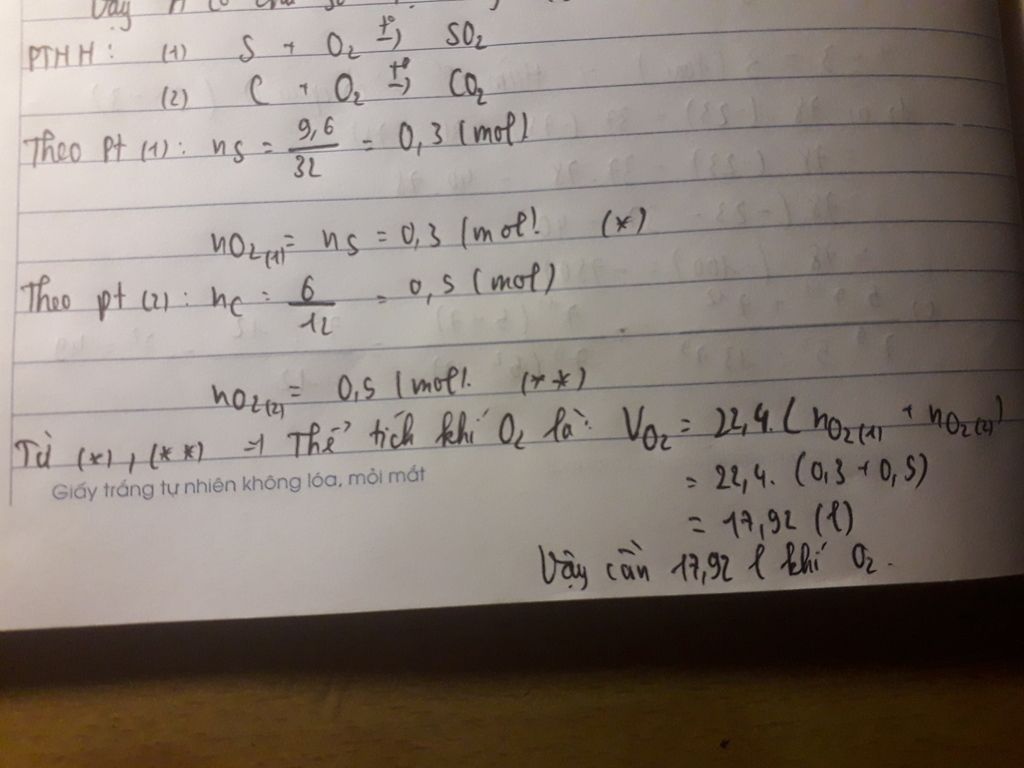 Vậy A có
PTHH: (1) S + O₂ →^(t°) SO₂
(2) C + O₂ →^(t°) CO₂
Theo pt (1): nS = 9,6/32 = 0,3 (mol)
nO₂(1) = nS = 0,3 (mol) (*)
Theo pt (2): nC = 6/12 = 0,5 (mol)
nO₂(2) = 0,5 (mol). (**)
Từ (*), (**) ⇒ Thể tích khí O₂ là: VO₂ = 22,4.(nO₂(1) + nO₂(2))
Giấy trắng tự nhiên không lóa, mỏi mắt
= 22,4. (0,3 + 0,5)
= 17,92 (l)
Vậy cần 17,92 l khí O₂.